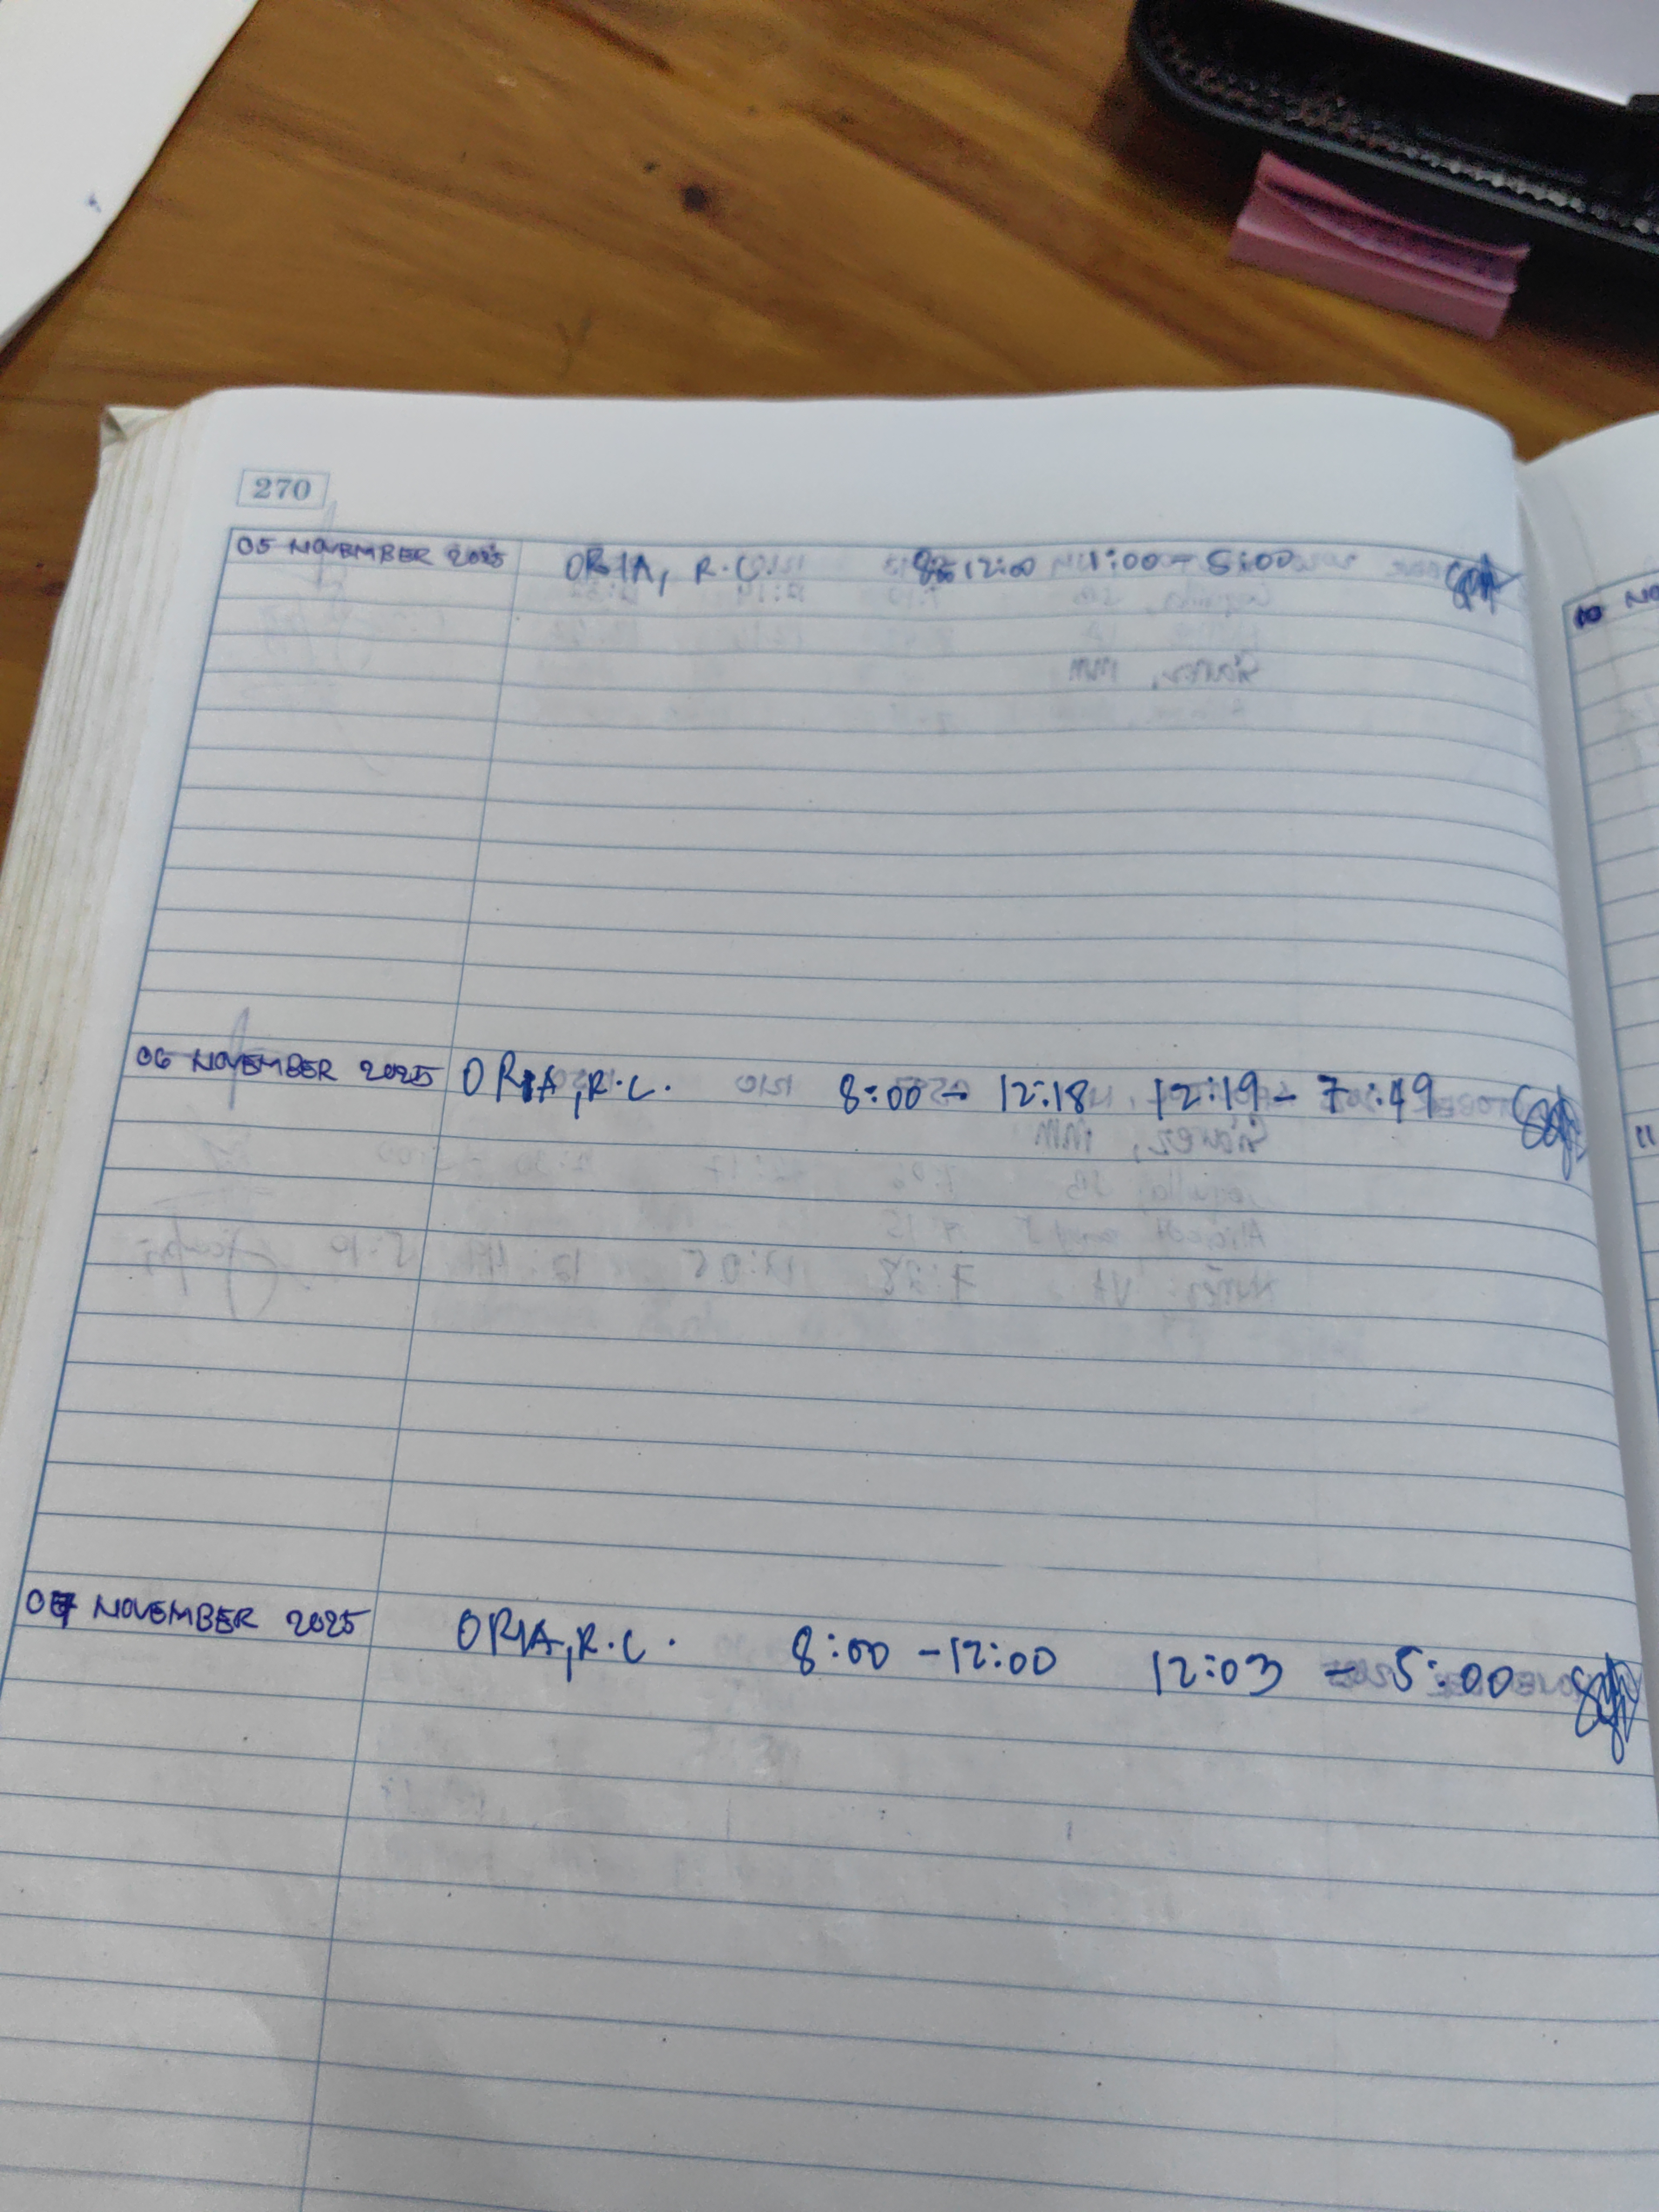 270
05 NOVEMBER 2025 ORIA, R.C. 12:00 1:00 - 5:00
06 NOVEMBER 2025 ORIA, R.C. 8:00 - 12:18 12:19 - 7:49
07 NOVEMBER 2025 ORIA, R.C. 8:00 - 12:00 12:03 - 5:00
10 NO
11